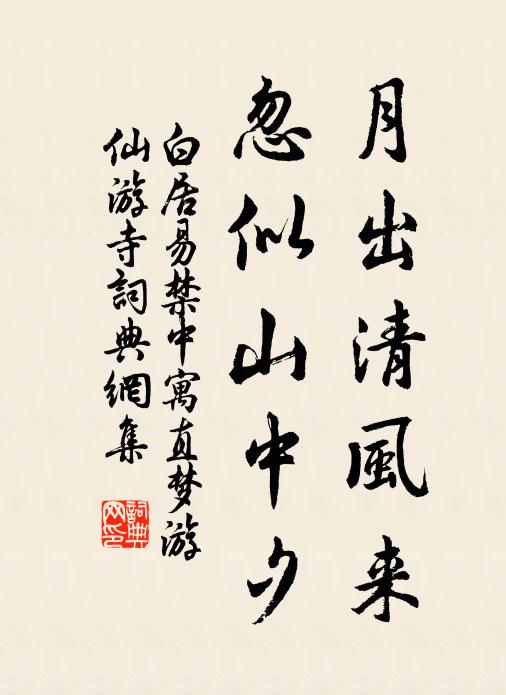 月出清風来
忽似山中夕
白居易禁中寓直梦游
仙游寺詞典網集
詞典
网印